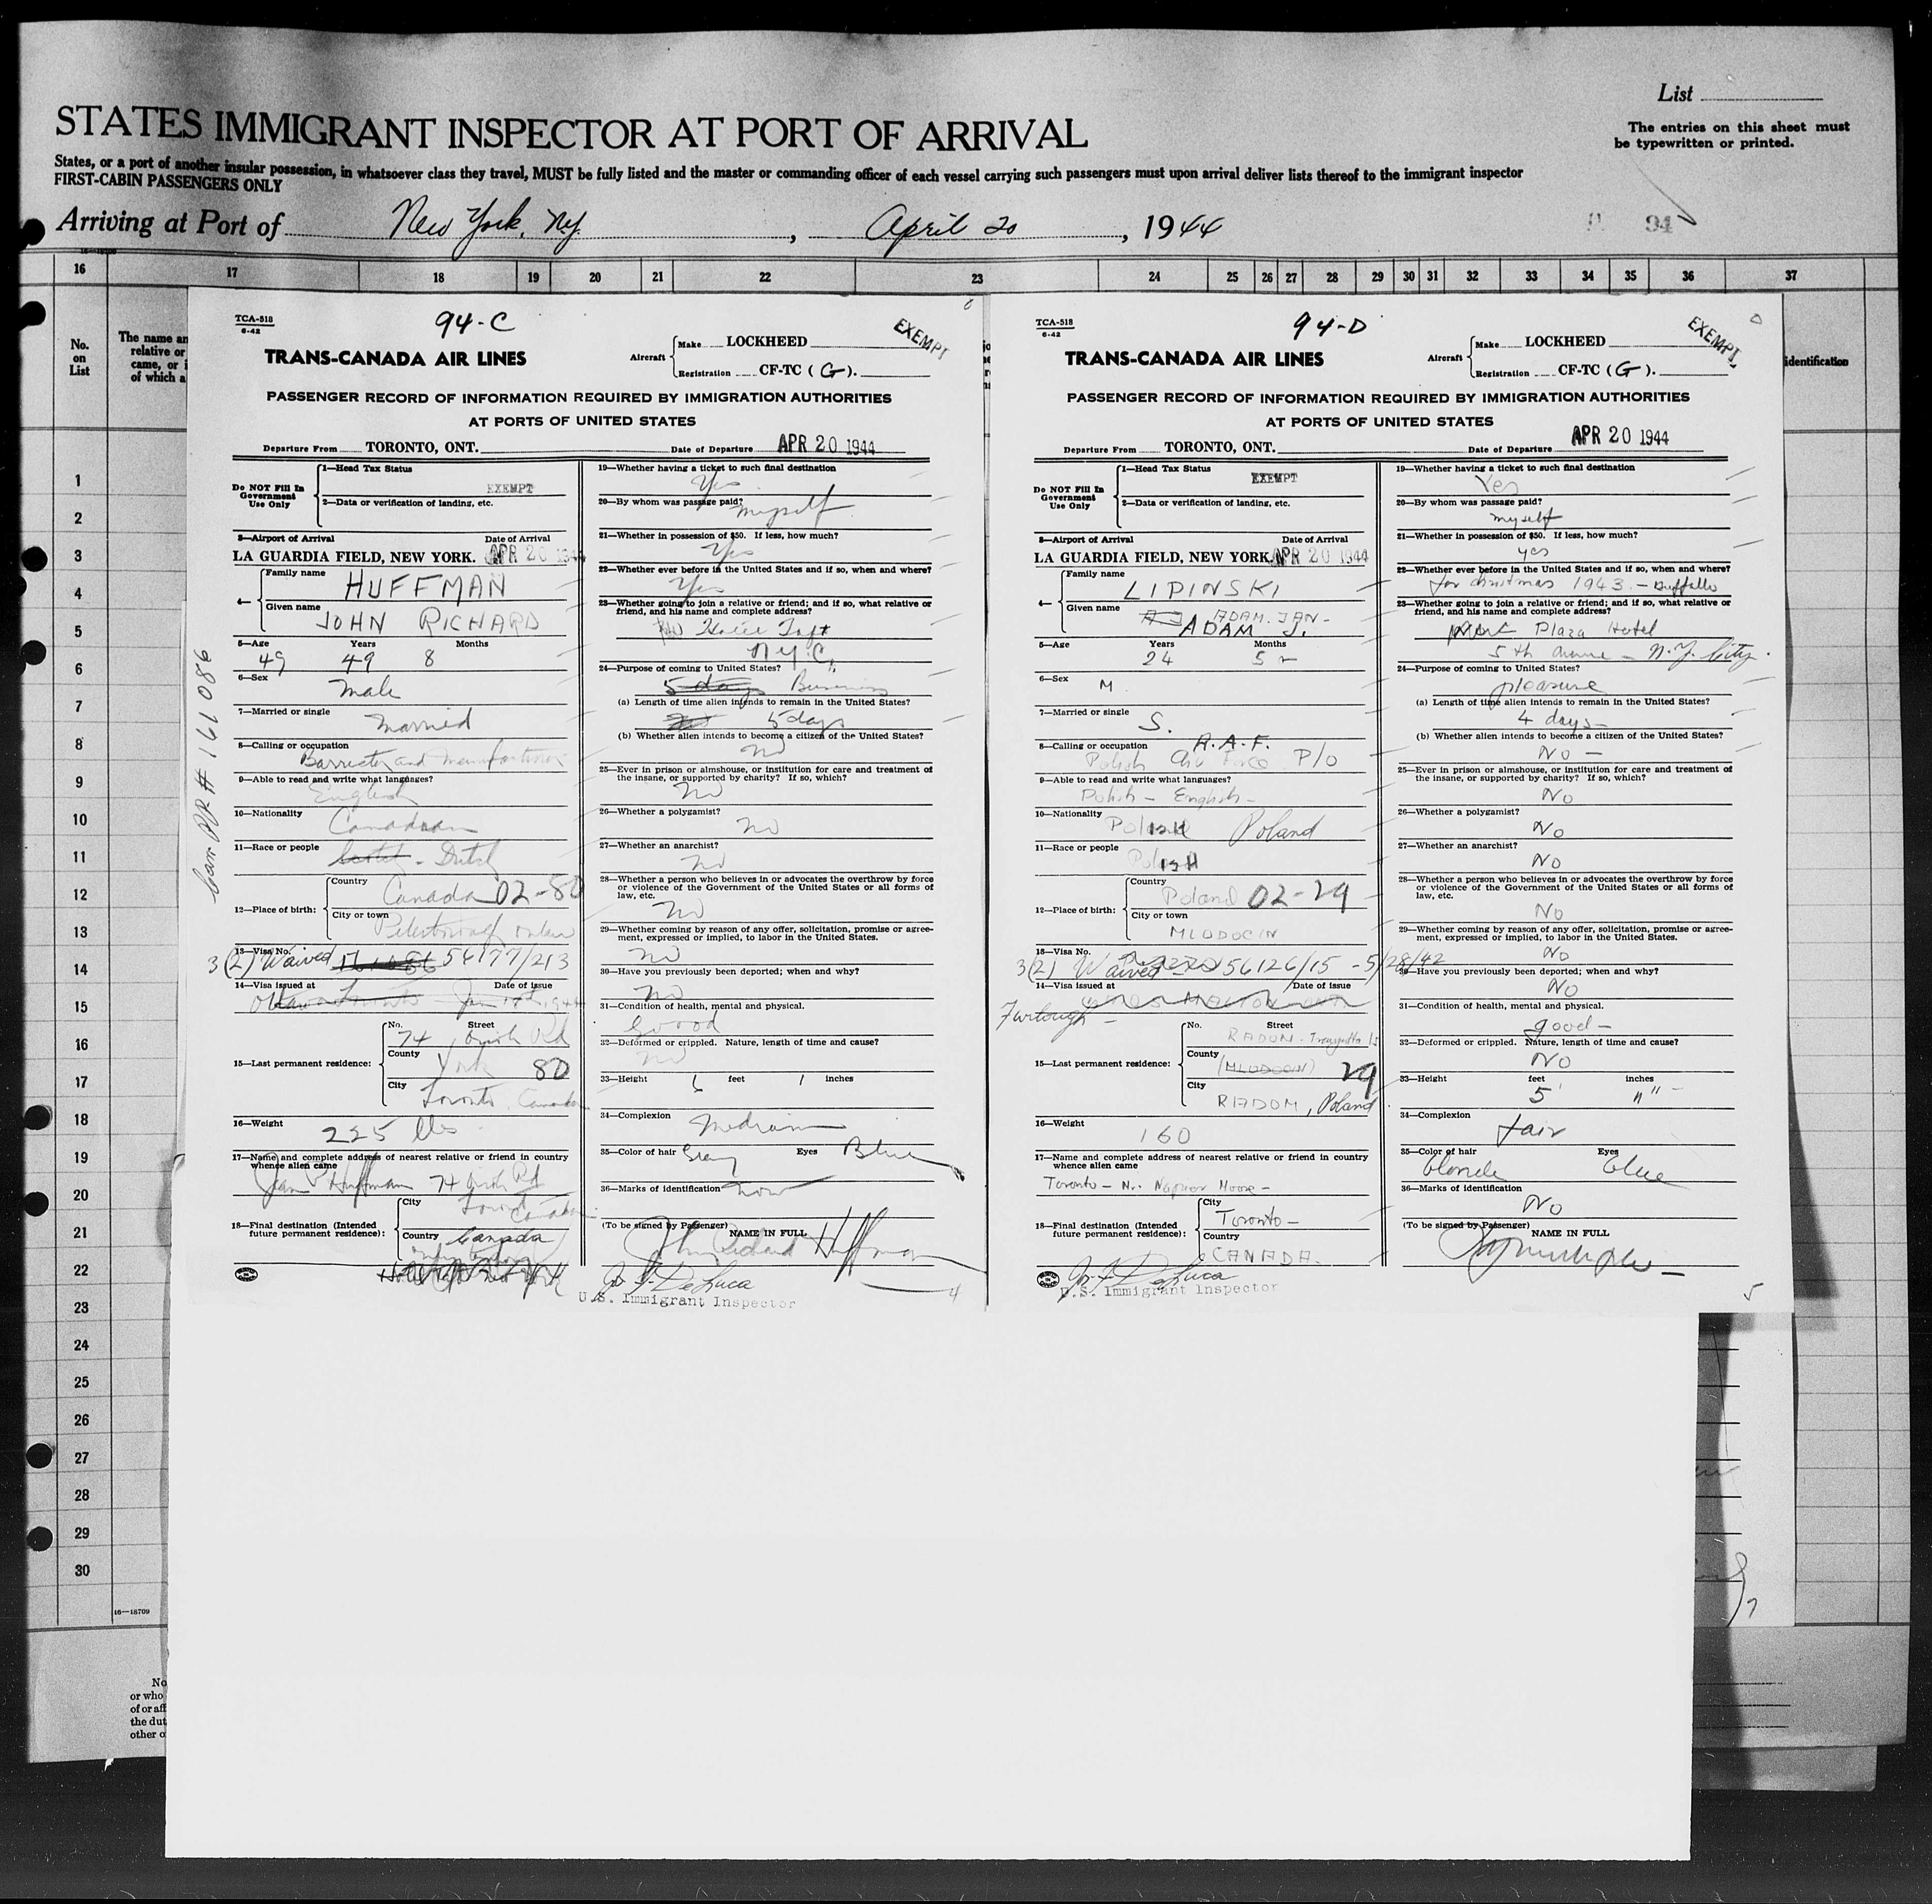 List
STATES IMMIGRANT INSPECTOR AT PORT OF ARRIVAL
The entries on this sheet must
be typewritten or printed.
States, or a port of another insular possession, in whatsoever class they travel, MUST be fully listed and the master or commanding officer of each vessel carrying such passengers must upon arrival deliver lists thereof to the immigrant inspector
FIRST-CABIN PASSENGERS ONLY
Arriving at Port of New York, N.Y. , April 20 , 1944
94
16—18709
16 17 18 19 20 21 22 23 24 25 26 27 28 29 30 31 32 33 34 35 36 37
No.
on
List
The name an
relative or
came, or i
of which a
identification
1
2
3
4
5
6
7
8
9
10
11
12
13
14
15
16
17
18
19
20
21
22
23
24
25
26
27
28
29
30
16—18709
No
or who
of or aff
the dut
other o
Can PP # 161086
TCA-518
6-42
94-C
EXEMPT
TRANS-CANADA AIR LINES
Aircraft
Make LOCKHEED
Registration CF-TC (G).
PASSENGER RECORD OF INFORMATION REQUIRED BY IMMIGRATION AUTHORITIES
AT PORTS OF UNITED STATES
Departure From TORONTO, ONT. Date of Departure APR 20 1944
Do NOT Fill In
Government
Use Only
1—Head Tax Status
EXEMPT
2—Data or verification of landing, etc.
3—Airport of Arrival Date of Arrival
LA GUARDIA FIELD, NEW YORK. APR 20 1944
4— Family name HUFFMAN
Given name JOHN RICHARD
5—Age Years Months
49 49 8
6—Sex Male
7—Married or single Married
8—Calling or occupation
Barrister and
9—Able to read and write what languages?
English
10—Nationality Canadian
11—Race or people Scotch - Dutch
12—Place of birth: Country Canada 02-80
City or town
13—Visa No.
3(2) Waived 161086 56177/213
14—Visa issued at Date of issue
Ottawa
15—Last permanent residence: No. Street
74 Rd
County York 80
City Toronto, Canada
16—Weight 225 lbs
17—Name and complete address of nearest relative or friend in country
whence alien came
Jean Huffman 74 Rd
18—Final destination (Intended
future permanent residence): City Toronto Canada
Country Canada
19—Whether having a ticket to such final destination
Yes
20—By whom was passage paid?
myself
21—Whether in possession of $50. If less, how much?
Yes
22—Whether ever before in the United States and if so, when and where?
Yes
23—Whether going to join a relative or friend; and if so, what relative or
friend, and his name and complete address?
Hotel Taft
N.Y.C.
24—Purpose of coming to United States?
5 days Business
(a) Length of time alien intends to remain in the United States?
5 days
(b) Whether alien intends to become a citizen of the United States?
No
25—Ever in prison or almshouse, or institution for care and treatment of
the insane, or supported by charity? If so, which?
No
26—Whether a polygamist?
No
27—Whether an anarchist?
No
28—Whether a person who believes in or advocates the overthrow by force
or violence of the Government of the United States or all forms of
law, etc.
No
29—Whether coming by reason of any offer, solicitation, promise or agree-
ment, expressed or implied, to labor in the United States.
No
30—Have you previously been deported; when and why?
No
31—Condition of health, mental and physical.
Good
32—Deformed or crippled. Nature, length of time and cause?
No
33—Height 6 feet 1 inches
34—Complexion Medium
35—Color of hair Gray Eyes Blue
36—Marks of identification
(To be signed by Passenger) NAME IN FULL
John Richard Huffman
J. F. DeLuca
U.S. Immigrant Inspector
4
TCA-518
6-42
94-D
EXEMPT
TRANS-CANADA AIR LINES
Aircraft
Make LOCKHEED
Registration CF-TC (G).
PASSENGER RECORD OF INFORMATION REQUIRED BY IMMIGRATION AUTHORITIES
AT PORTS OF UNITED STATES
Departure From TORONTO, ONT. Date of Departure APR 20 1944
Do NOT Fill In
Government
Use Only
1—Head Tax Status
EXEMPT
2—Data or verification of landing, etc.
3—Airport of Arrival Date of Arrival
LA GUARDIA FIELD, NEW YORK. APR 20 1944
4— Family name LIPINSKI
Given name ADAM. JAN-
ADAM J.
5—Age Years Months
24 5
6—Sex M
7—Married or single S.
8—Calling or occupation R.A.F.
Polish Air Force P/O
9—Able to read and write what languages?
Polish - English -
10—Nationality Polish Poland
11—Race or people Polish
12—Place of birth: Country Poland 02-29
City or town
MLODOCIN
13—Visa No.
3(2) Waived 56126/15 - 5/28/42
14—Visa issued at Date of issue
Furlough -
15—Last permanent residence: No. Street
RADOM.
County (MLODOCIN) 29
City RADOM, Poland
16—Weight 160
17—Name and complete address of nearest relative or friend in country
whence alien came
Toronto - Mr. Napier Moore -
18—Final destination (Intended
future permanent residence): City Toronto -
Country CANADA.
19—Whether having a ticket to such final destination
Yes
20—By whom was passage paid?
myself
21—Whether in possession of $50. If less, how much?
yes
22—Whether ever before in the United States and if so, when and where?
for christmas 1943 - Buffallo
23—Whether going to join a relative or friend; and if so, what relative or
friend, and his name and complete address?
Plaza Hotel
5th - N.Y. City.
24—Purpose of coming to United States?
pleasure
(a) Length of time alien intends to remain in the United States?
4 days -
(b) Whether alien intends to become a citizen of the United States?
No -
25—Ever in prison or almshouse, or institution for care and treatment of
the insane, or supported by charity? If so, which?
No
26—Whether a polygamist?
No
27—Whether an anarchist?
No
28—Whether a person who believes in or advocates the overthrow by force
or violence of the Government of the United States or all forms of
law, etc.
No
29—Whether coming by reason of any offer, solicitation, promise or agree-
ment, expressed or implied, to labor in the United States.
No
30—Have you previously been deported; when and why?
No
31—Condition of health, mental and physical.
good -
32—Deformed or crippled. Nature, length of time and cause?
No
33—Height feet inches
5' 11"
34—Complexion fair
35—Color of hair Eyes
blonde blue
36—Marks of identification
No
(To be signed by Passenger) NAME IN FULL
J. F. DeLuca
U.S. Immigrant Inspector
5